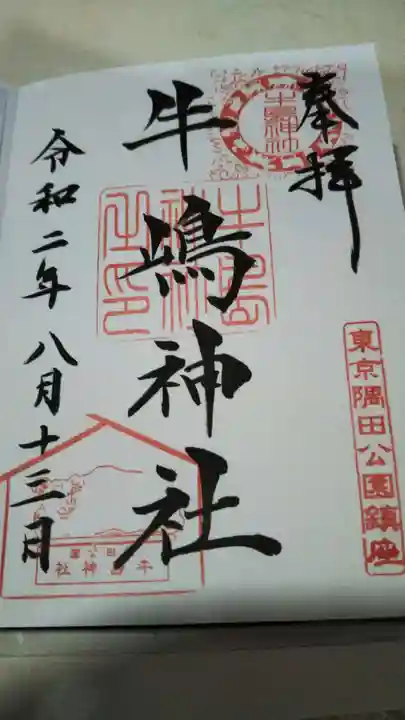 奉拝
東京隅田公園鎮座
牛嶋神社
令和二年八月十三日
牛嶋神社